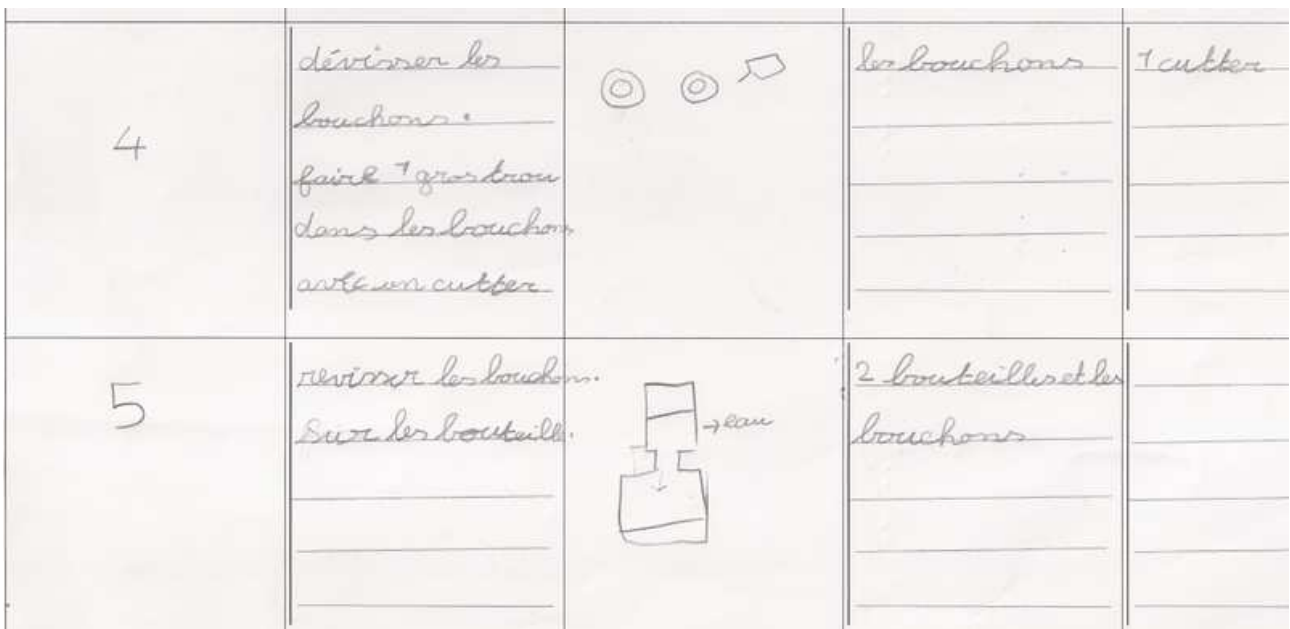 4
dévisser les
bouchons.
faire 1 gros trou
dans les bouchons
avec un cutter
les bouchons
1 cutter
5
revisser les bouchons.
sur les bouteill.
→ eau
2 bouteilles et les
bouchons